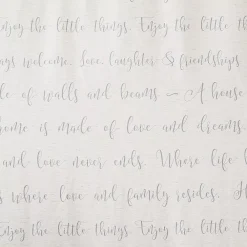 njoy the little things. Enjoy the little th
ays welcome. Love, laughter & friendships
de of walls and beams ~ A house
home is made of love and dreams.
and love never ends. Where life
s where love and family resides. H
Enjoy the little things. Enjoy the little th